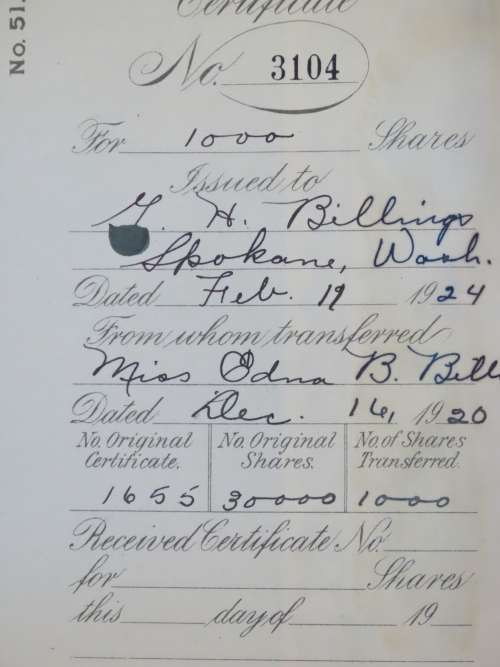 No. 51.
Certificate
No. 3104
For 1000 Shares
Issued to
G. H. Billings
Spokane, Wash.
Dated Feb. 19 1924
From whom transferred
Miss Edna B. Bill
Dated Dec. 16, 1920
No. Original Certificate.
No. Original Shares.
No. of Shares Transferred.
1655 30000 1000
Received Certificate No.
for Shares
this day of 19